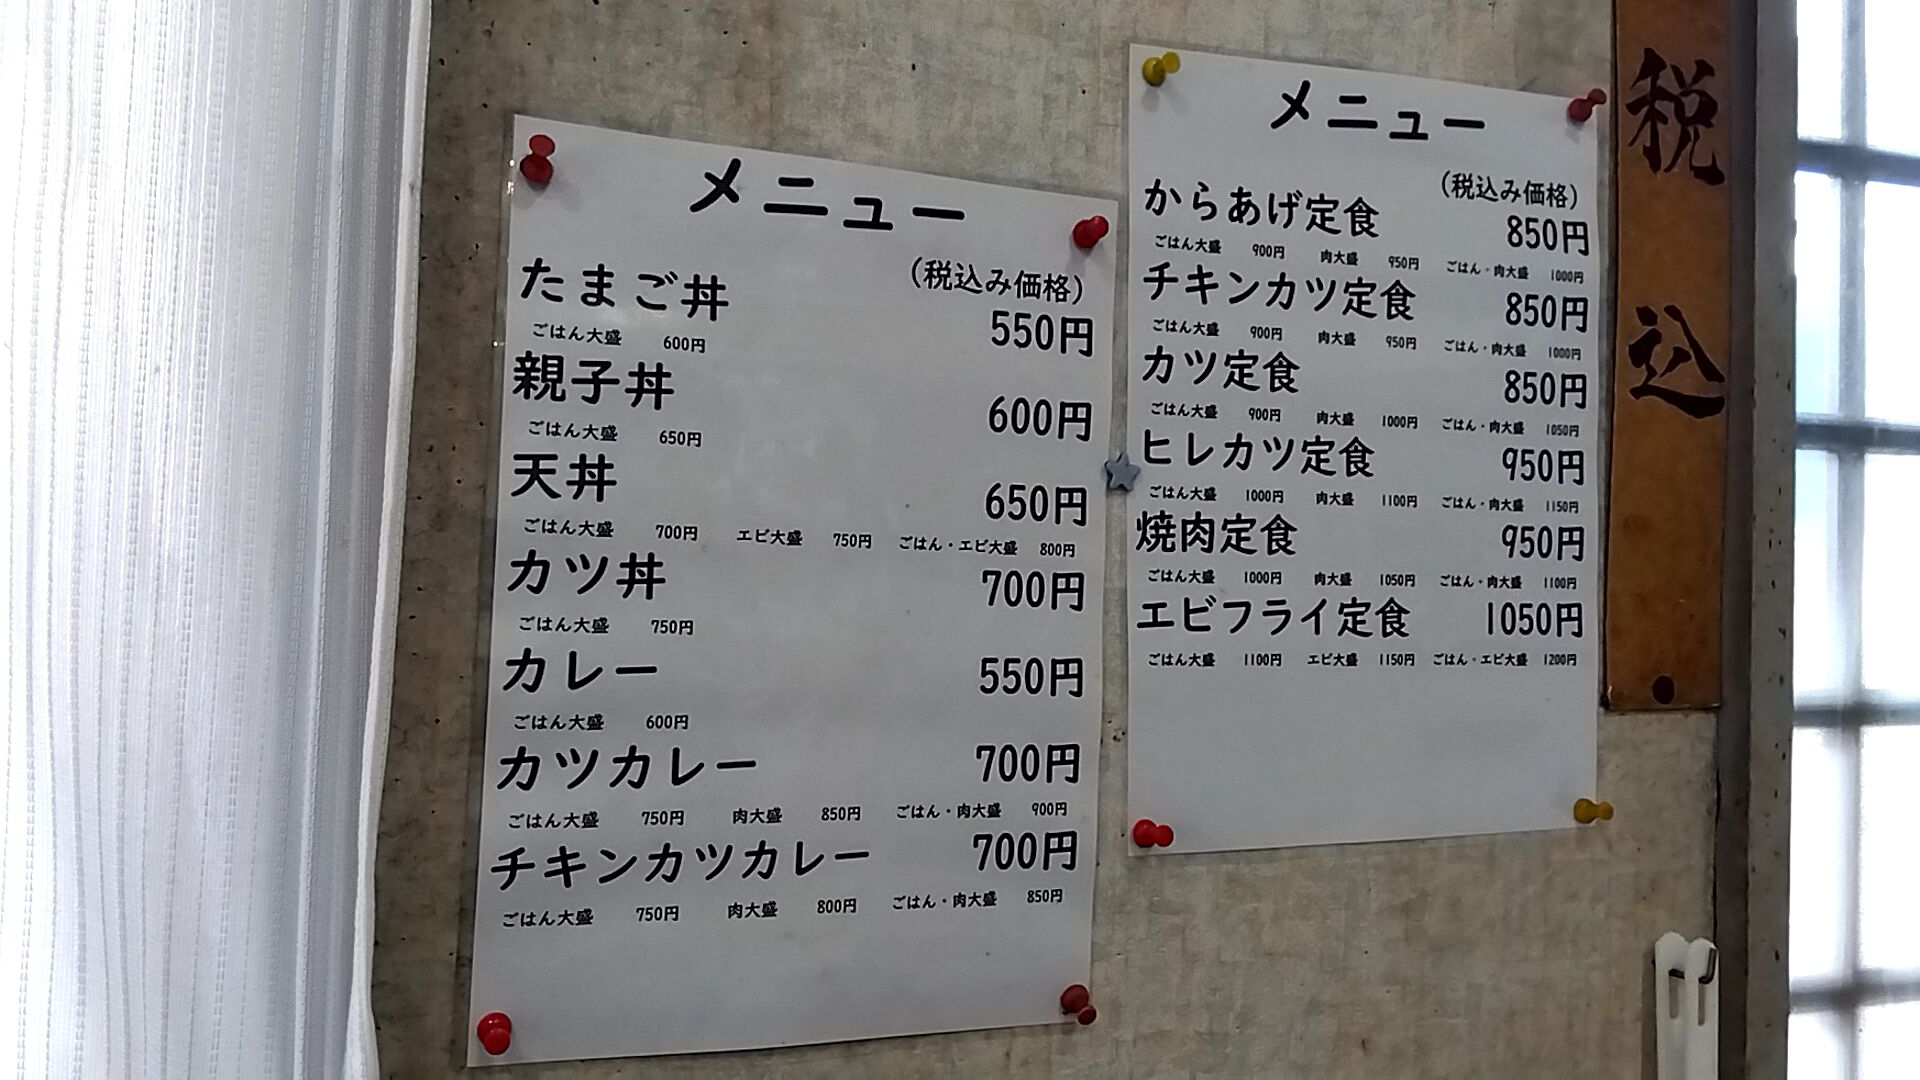 メニュー
(税込み価格)
たまご丼 550円
ごはん大盛 600円
親子丼 600円
ごはん大盛 650円
天丼 650円
ごはん大盛 700円 エビ大盛 750円 ごはん・エビ大盛 800円
カツ丼 700円
ごはん大盛 750円
カレー 550円
ごはん大盛 600円
カツカレー 700円
ごはん大盛 750円 肉大盛 850円 ごはん・肉大盛 900円
チキンカツカレー 700円
ごはん大盛 750円 肉大盛 800円 ごはん・肉大盛 850円
メニュー
(税込み価格)
からあげ定食 850円
ごはん大盛 900円 肉大盛 950円 ごはん・肉大盛 1000円
チキンカツ定食 850円
ごはん大盛 900円 肉大盛 950円 ごはん・肉大盛 1000円
カツ定食 850円
ごはん大盛 900円 肉大盛 1000円 ごはん・肉大盛 1050円
ヒレカツ定食 950円
ごはん大盛 1000円 肉大盛 1100円 ごはん・肉大盛 1150円
焼肉定食 950円
ごはん大盛 1000円 肉大盛 1050円 ごはん・肉大盛 1100円
エビフライ定食 1050円
ごはん大盛 1100円 エビ大盛 1150円 ごはん・エビ大盛 1200円
税込